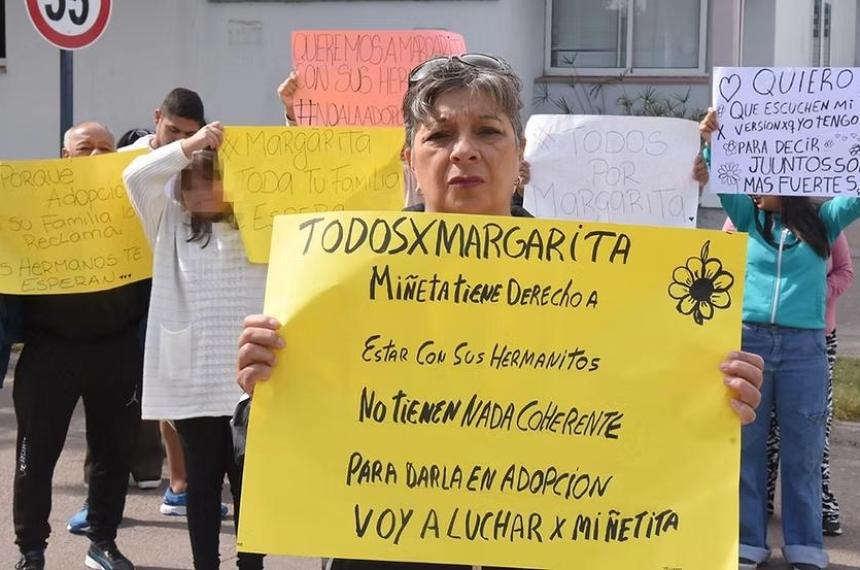 55
QUEREMOS A MARGARI
CON SUS HER
#NOALAADOP
PORQUE
ADOPCIO
SU FAMILIA LA
RECLAMA.
S HERMANOS TE
ESPERAN
X MARGARITA
TODA TU FAMILIA
ESPERA
X TODOS
POR
MARGARITA
QUIERO
QUE ESCUCHEN MI
VERSION XQ YO TENGO
PARA DECIR
JUNTOS SO
MAS FUERTES
TODOSXMARGARITA
MIÑETA TIENE DERECHO A
ESTAR CON SUS HERMANITOS
NO TIENEN NADA COHERENTE
PARA DARLA EN ADOPCIÓN
VOY A LUCHAR X MIÑETITA